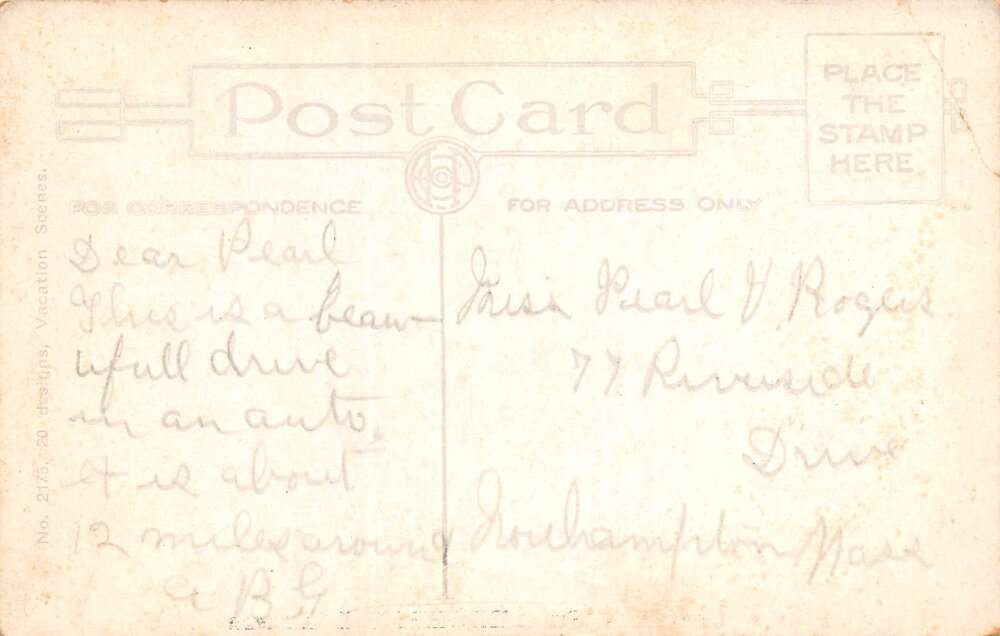 Post Card
PLACE
THE
STAMP
HERE
FOR CORRESPONDENCE
FOR ADDRESS ONLY
No. 2175, 20 designs, Vacation Scenes.
Dear Pearl
This is a beau-
ifull drive
in an auto.
it is about
12 miles around
B G
Miss Pearl V Rogers
77 Riverside
Drive
Northampton Mass